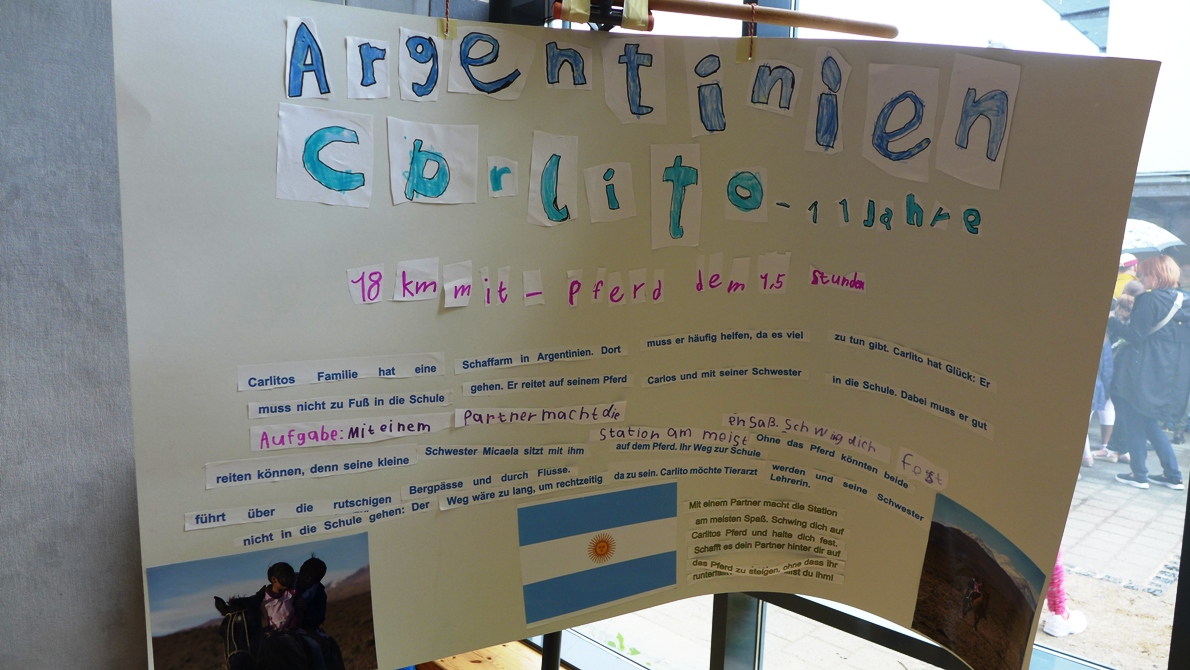 Argentinien
Carlito - 11 Jahre
18 km mit - Pferd dem 1,5 Stunden
Carlitos Familie hat eine Schaffarm in Argentinien. Dort muss er häufig helfen, da es viel zu tun gibt. Carlito hat Glück: Er
muss nicht zu Fuß in die Schule gehen. Er reitet auf seinem Pferd Carlos und mit seiner Schwester in die Schule. Dabei muss er gut
Aufgabe: Mit einem Partner macht die Station am meist en Saß. Schwing dich fest
reiten können, denn seine kleine Schwester Micaela sitzt mit ihm auf dem Pferd. Ihr Weg zur Schule Ohne das Pferd könnten beide
führt über die rutschigen Bergpässe und durch Flüsse.
nicht in die Schule gehen: Der Weg wäre zu lang, um rechtzeitig da zu sein. Carlito möchte Tierarzt werden und seine Schwester Lehrerin.
Mit einem Partner macht die Station
am meisten Spaß. Schwing dich auf
Carlitos Pferd und halte dich fest.
Schafft es dein Partner hinter dir auf
das Pferd zu steigen, ohne dass ihr
du ihm!